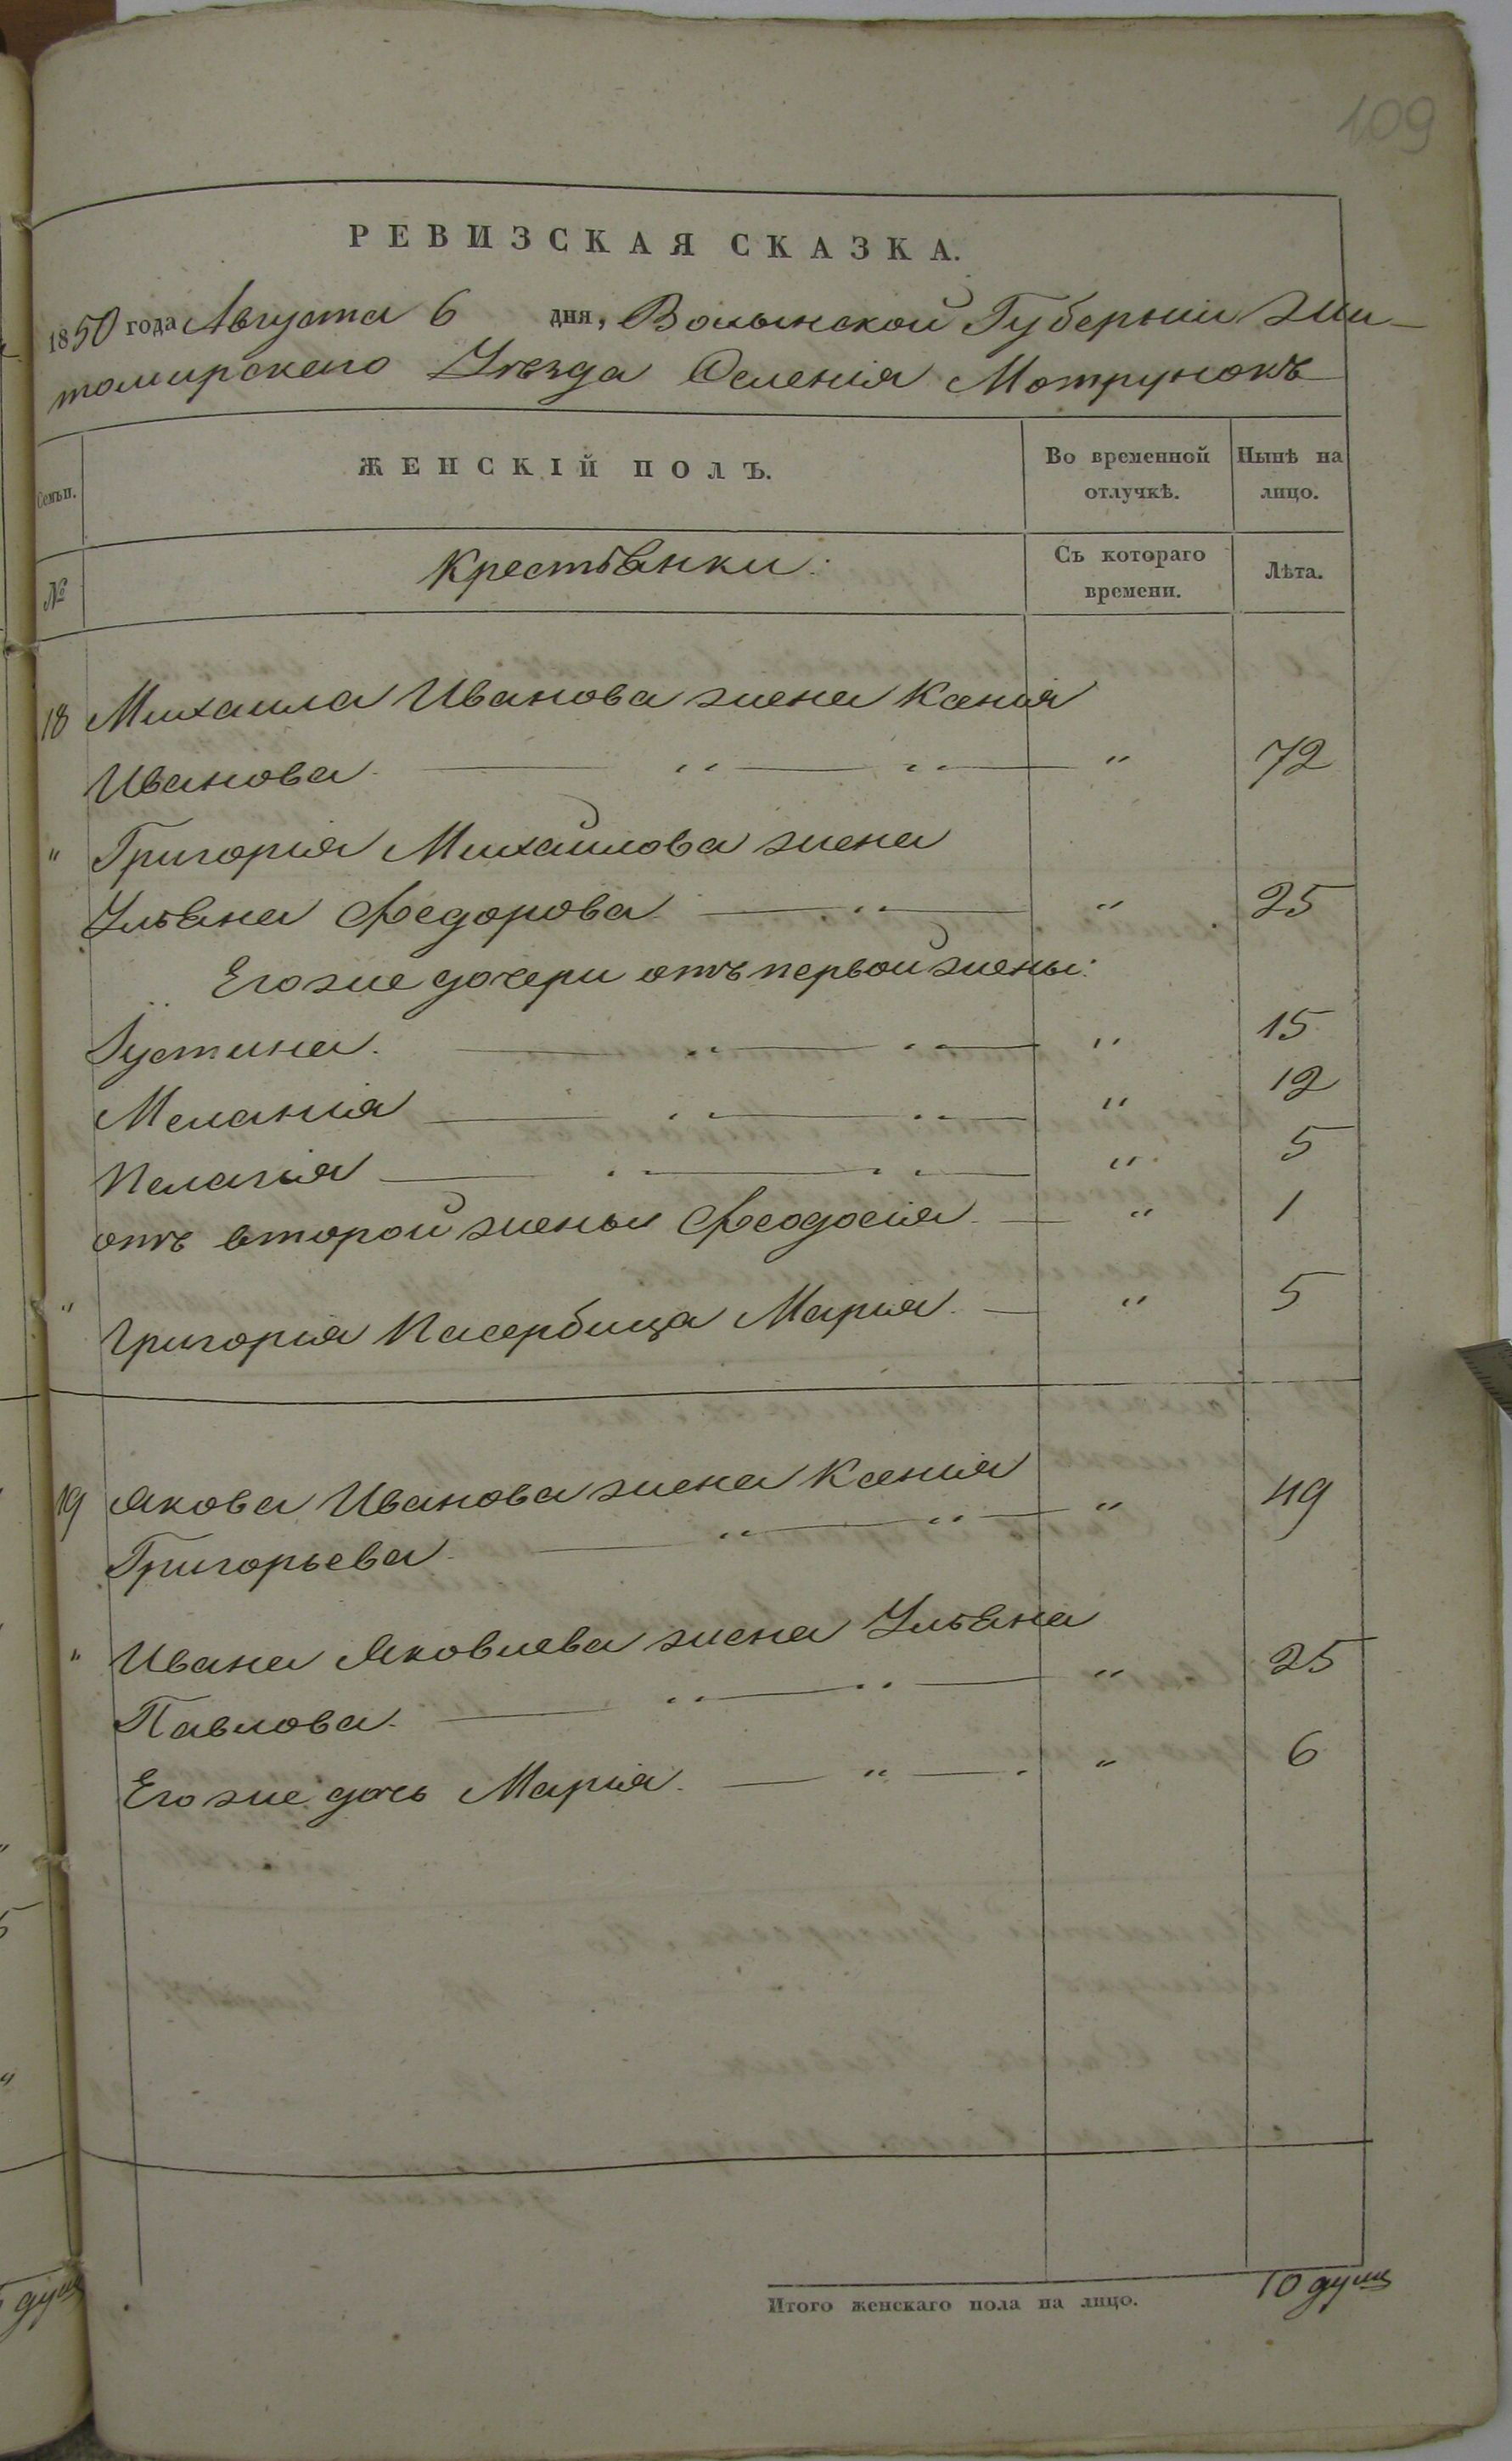 109
РЕВИЗСКАЯ СКАЗКА.
1850 года Августа 6 дня, Волынской Губерніи Жи-
томирскаго Уѣзда Селенія Мотрунокъ
Семьи.
ЖЕНСКІЙ ПОЛЪ.
Во временной отлучкѣ.
Нынѣ на лицо.
№
Крестьянки:
Съ котораго времени.
Лѣта.
18 Михаила Иванова жена Ксенія
Иванова. — „ — „ — „ 72
„ Григорія Михайлова жена
Ульяна Федорова — „ — „ 25
Его же дочери отъ первой жены:
Іустина. — „ — „ — „ 15
Меланія — „ — „ — „ 12
Пелагія — „ — „ — „ 5
отъ второй жены Феодосія — „ 1
„ Григорія Пасербица Марія. — „ 5
19 Якова Иванова жена Ксенія
Григорьева. — „ — „ — „ 49
„ Ивана Яковлева жена Ульяна
Павлова. — „ — „ — „ 25
Его же дочь Марія. — „ — „ 6
Итого женскаго пола на лицо. 10 душ